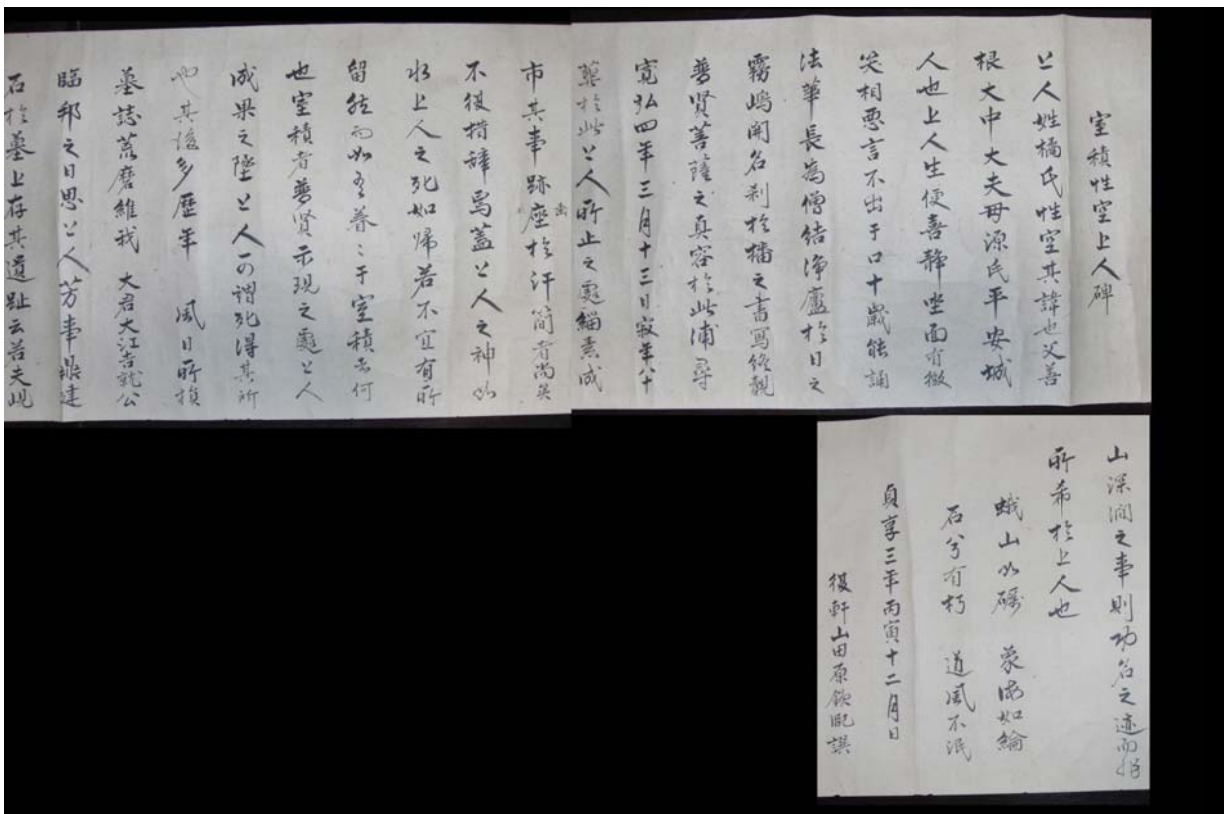 室積性空上人碑
上人姓橘氏性空其諱也父善
根大中大夫母源氏平安城
人也上人生便喜静坐面有微
笑相悪言不出于口十歳能誦
法華長為僧結浄廬於日之
霧嶋開名刹於播之書写終観
普賢菩薩之真容於此浦尋
寛弘四年三月十三日寂年八十
葬於此上人所止之處緇素成
市其事跡座於汗簡者尚矣
不復措辞焉蓋上人之神如
水上人之死如帰若不宜有所
留然而如眷〻于室積者何
也室積者普賢示現之處上人
成果之墜上人可謂死得其所
也其後多歴年 風日所損
墓誌荒磨維我 大君大江吉就公
臨邦之日思上人芳事鼎建
石於墓上存其道趾云若夫峴
山深澗之事則功名之迹而
所希於上人也
蛾山如礪 象海如綸
石兮有朽 道風不泯
貞享三年丙寅十二月日
復軒山田原欽 譔